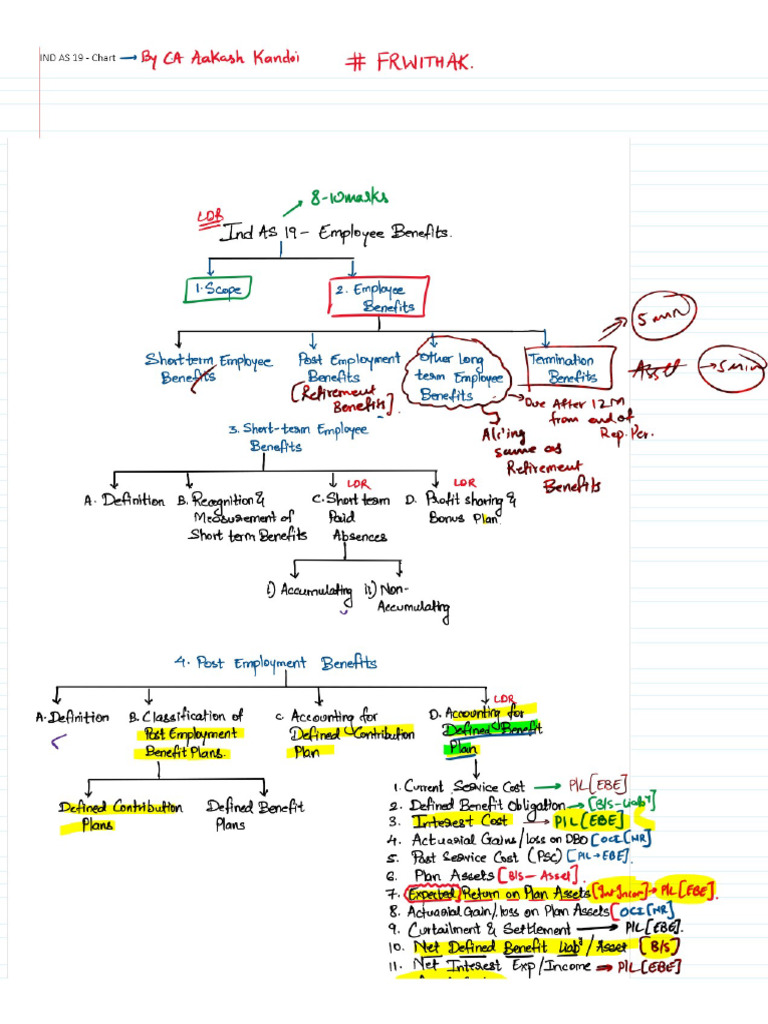 IND AS 19 - Chart → By CA Aakash Kandoi # FRWITHAK.
8-10 marks
LDR
Ind AS 19 - Employee Benefits.
1. Scope
2. Employee
Benefits
5 min
Short term Employee
Benefits
Post Employment
Benefits
[Retirement
Benefits].
Other long
term Employee
Benefits
Termination
Benefits
Asset → 5 min
→ Due After 12M
from end of
Rep. Per.
A/c'ing
same as
Retirement
Benefits
3. Short-team Employee
Benefits
LDR LDR
A. Definition
B. Recognition &
Measurement of
Short term Benefits
C. Short team
Paid
Absences
D. Profit sharing &
Bonus Plan.
i) Accumulating
ii) Non-
Accumulating
4. Post Employment Benefits
LDR
A. Definition
B. Classification of
Post Employment
Benefit Plans.
C. Accounting for
Defined Contribution
Plan
D. Accounting for
Defined Benefit
Plan
Defined Contribution
Plans
Defined Benefit
Plans
1. Current Service Cost → P/L [EBE]
2. Defined Benefit Obligation → [B/S - Liabʸ]
3. Interest Cost → P/L [EBE]
4. Actuarial Gains/loss on DBO [OCI [NR]
5. Past Service Cost (PSC) [P/L → EBE].
6. Plan Assets [B/S - Asset].
7. (Expected) Return on Plan Assets [Int Incom] → P/L [EBE].
8. Actuarial Gain/loss on Plan Assets [OCI [NR]
9. Curtailment & Settlement → P/L [EBE].
10. Net Defined Benefit Liabʸ/Asset [B/S]
11. Net Interest Exp/Income → P/L [EBE]